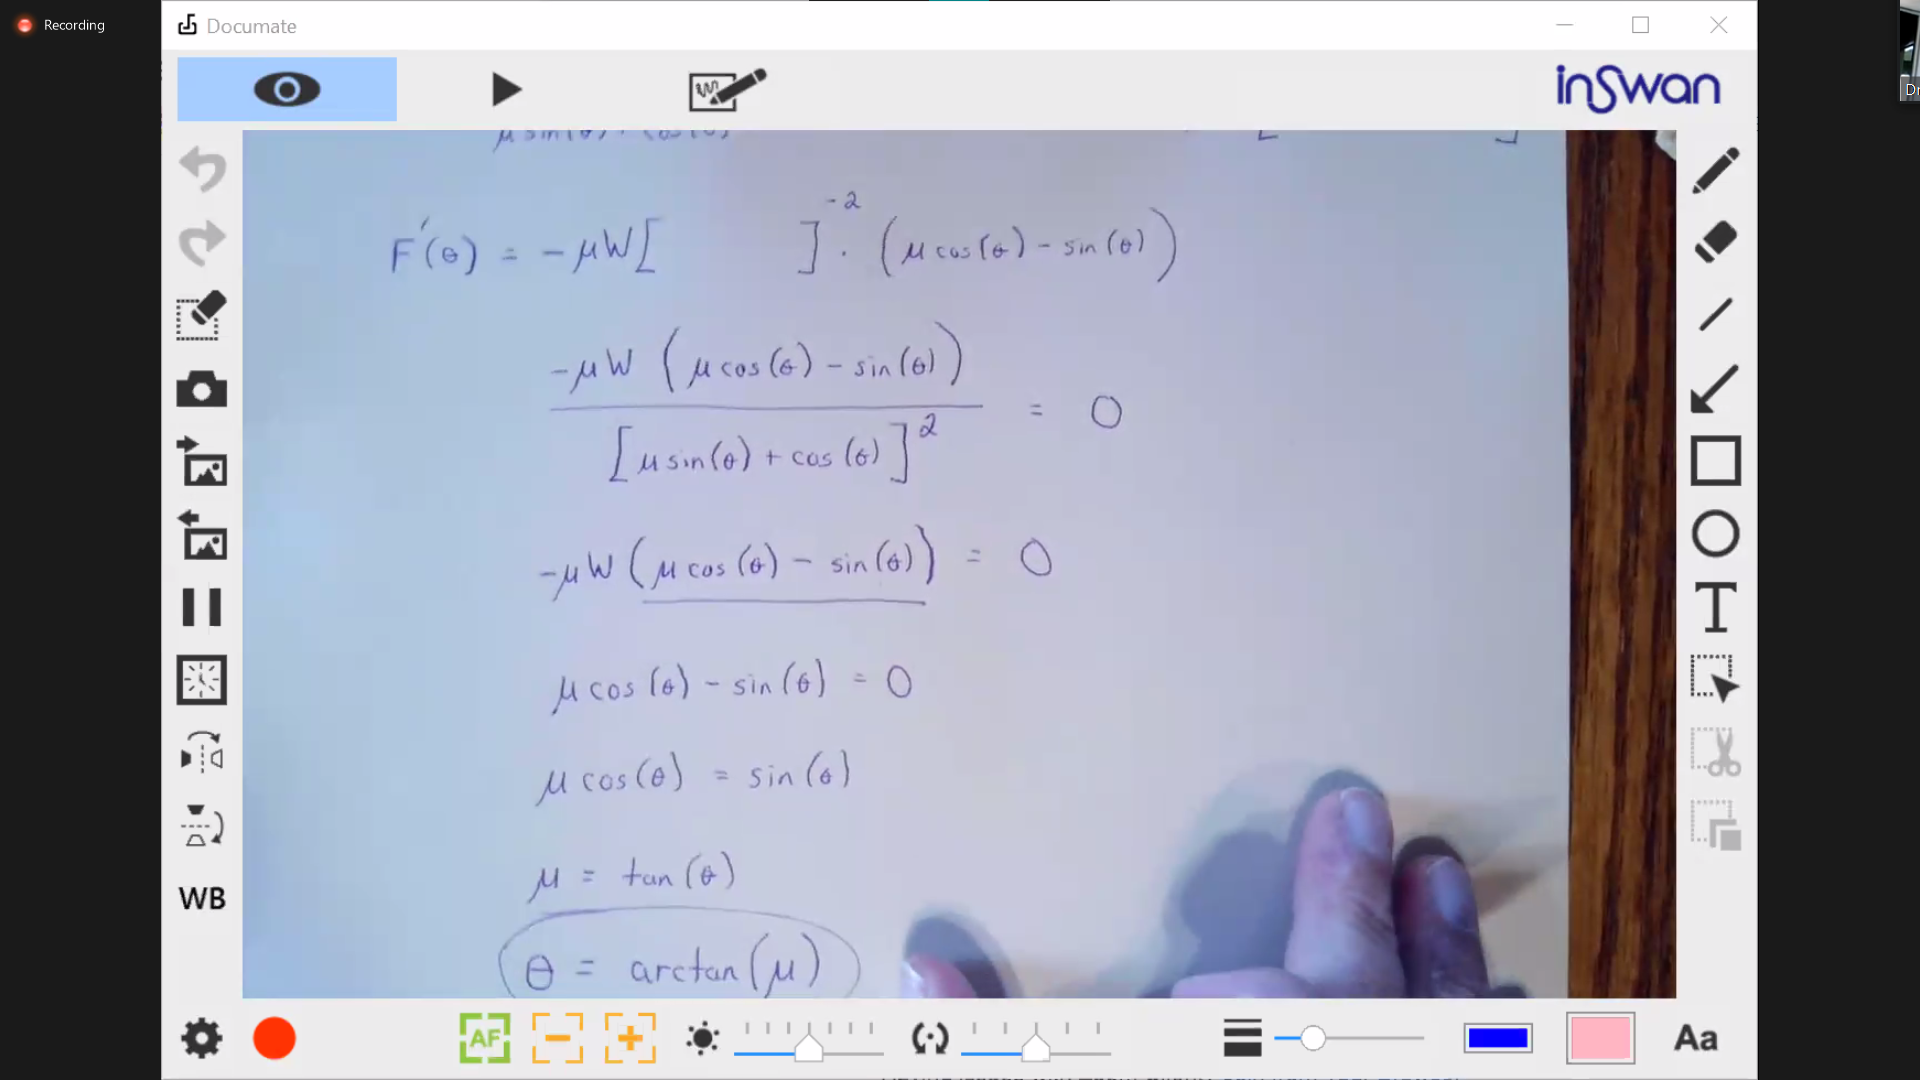 Recording
Documate
inSwan
μ sin(θ) + cos(θ) [ ]
F'(θ) = -μW[ ]⁻² · (μcos(θ) - sin(θ))
-μW (μcos(θ) - sin(θ))
[μsin(θ) + cos(θ)]² = 0
-μW (μcos(θ) - sin(θ)) = 0
μcos(θ) - sin(θ) = 0
μcos(θ) = sin(θ)
μ = tan(θ)
θ = arctan(μ)
T
WB
AF
Aa
Dr